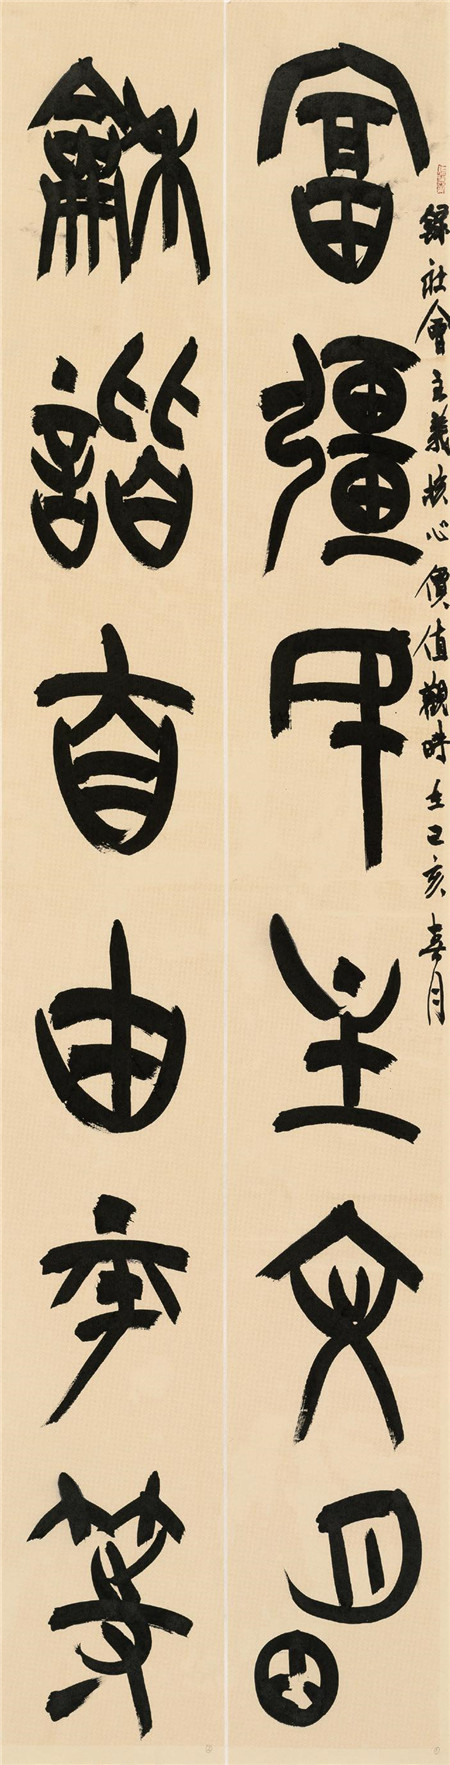 錄社會主義核心價值觀時在己亥春月
富彊民主文明
龢諧自由平等